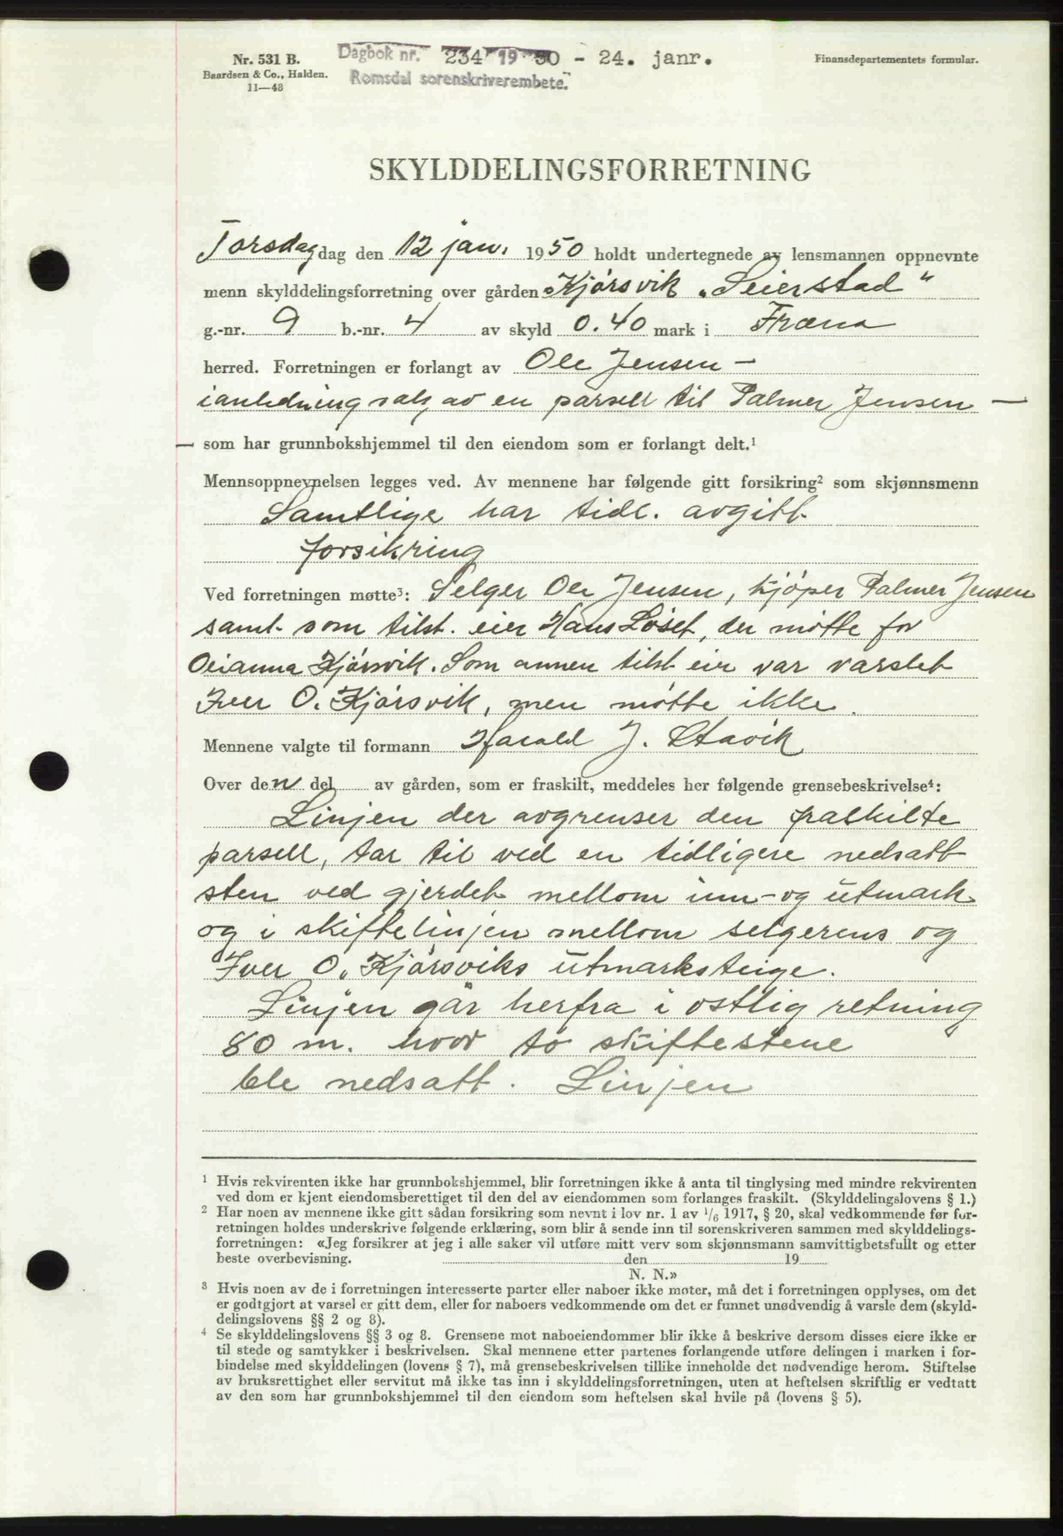 Nr. 531 B.
Baardsen & Co., Halden.
11—48
Dagbok nr. 234 19 50 - 24. janr.
Romsdal sorenskriverembete.
Finansdepartementets formular.
SKYLDDELINGSFORRETNING
Torsdag dag den 12 jan. 1950 holdt undertegnede av lensmannen oppnevnte
menn skylddelingsforretning over gården Kjørsvik "Seierstad"
g.-nr. 9 b.-nr. 4 av skyld 0.40 mark i Fræna
herred. Forretningen er forlangt av Ole Jensen —
ianledning salg av en parsell til Palmer Jensen —
— som har grunnbokshjemmel til den eiendom som er forlangt delt.¹
Mennsoppnevnelsen legges ved. Av mennene har følgende gitt forsikring² som skjønnsmenn
Samtlige har tidl. avgitt
forsikring
Ved forretningen møtte³: Selger Ole Jensen, kjøper Palmer Jensen
samt som tilst. eier Hans Løset, der møtte for
Kjørsvik. Som annen tilst eier var varslet
Iver O. Kjørsvik, men møtte ikke.
Mennene valgte til formann Harald J. Stavik
Over den del av gården, som er fraskilt, meddeles her følgende grensebeskrivelse⁴:
Linjen der avgrenser den fraskilte
parsell, tar til ved en tidligere nedsatt
sten ved gjerdet mellom inn- og utmark
og i skiftelinjen mellom selgerens og
Iver O. Kjørsviks utmarksteige.
Linjen går herfra i østlig retning
80 m. hvor to skiftestene
ble nedsatt. Linjen
¹ Hvis rekvirenten ikke har grunnbokshjemmel, blir forretningen ikke å anta til tinglysing med mindre rekvirenten
ved dom er kjent eiendomsberettiget til den del av eiendommen som forlanges fraskilt. (Skylddelingslovens § 1.)
² Har noen av mennene ikke gitt sådan forsikring som nevnt i lov nr. 1 av 1/6 1917, § 20, skal vedkommende før for-
retningen holdes underskrive følgende erklæring, som blir å sende inn til sorenskriveren sammen med skylddelings-
forretningen: «Jeg forsikrer at jeg i alle saker vil utføre mitt verv som skjønnsmann samvittighetsfullt og etter
beste overbevisning. den 19
N. N.»
³ Hvis noen av de i forretningen interesserte parter eller naboer ikke møter, må det i forretningen opplyses, om det
er godtgjort at varsel er gitt dem, eller for naboers vedkommende om det er funnet unødvendig å varsle dem (skyld-
delingslovens §§ 2 og 8).
⁴ Se skylddelingslovens §§ 3 og 8. Grensene mot naboeiendommer blir ikke å beskrive dersom disses eiere ikke er
til stede og samtykker i beskrivelsen. Skal mennene etter partenes forlangende utføre delingen i marken i for-
bindelse med skylddelingen (lovens § 7), må grensebeskrivelsen tillike inneholde det nødvendige herom. Stiftelse
av bruksrettighet eller servitut må ikke tas inn i skylddelingsforretningen, uten at heftelsen skriftlig er vedtatt
av den som har grunnbokshjemmel til den eiendom som heftelsen skal hvile på (lovens § 5).